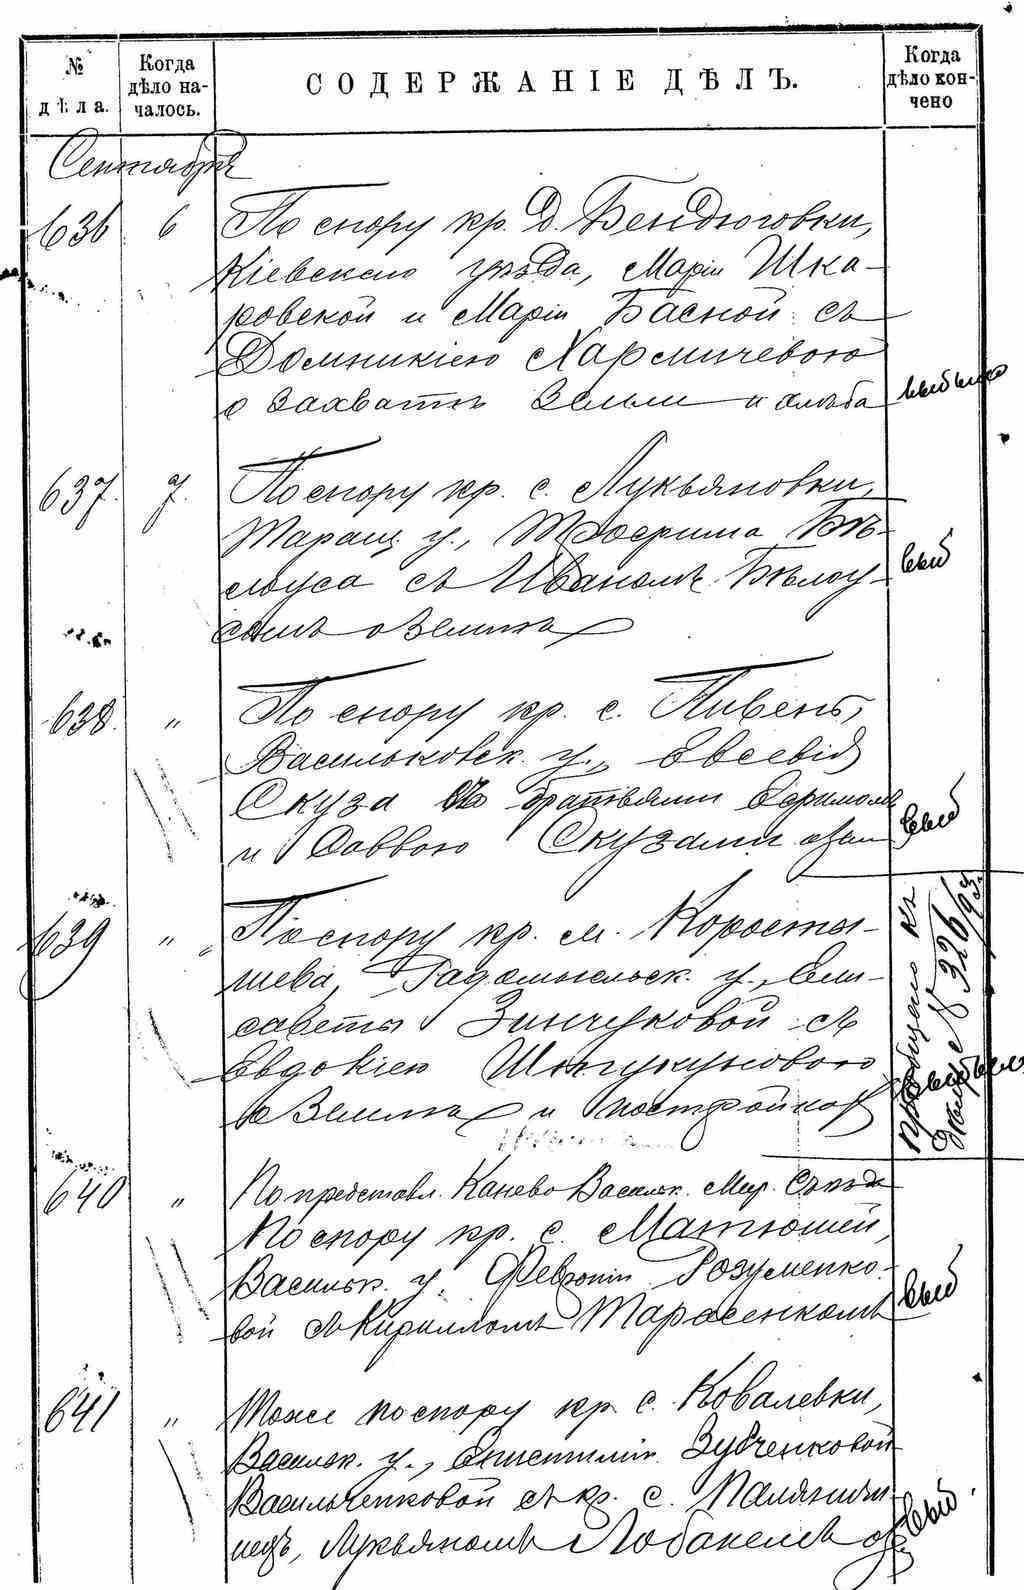 № дѣла. Когда дѣло началось. СОДЕРЖАНІЕ ДѢЛЪ. Когда дѣло кончено
Сентября
636 6 По спору кр. д. Бендюговки,
Кіевскаго уѣзда, Маріи Шка-
ровской и Маріи Басной съ
Домникіею
о захватѣ земли и хлѣба выбыло
637. 7. По спору кр. с. Лукьяновки,
Таращ. у., Трофима Бѣ-
лоуса съ Иваномъ Бѣлоу- выб
сомъ о землѣ
638. " По спору кр. с. Пивень,
Васильковск. у., Евсевія
Скуза съ братьями Ефимомъ
и Саввою Скузами о зем выб
639 " По спору кр. м. Коросты-
шева, Радомысльск. у., Ели-
саветы Зинчуковой съ
Евдокіею
о землѣ и постройках
пріобщено къ
дѣлу № 326/93
выбыло
640 " По представл. Канево Васильк. Мир. Съѣзда
По спору кр. с. Матюшей,
Васильк. у. Февроніи Розуменко-
вой съ Кирилломъ Тарасенкомъ выб
641 " Тоже по спору кр. с. Ковалевки,
Васильк. у., Епистиміи Зубченковой
Васильченковой съ кр. с.
Лукьяномъ выб